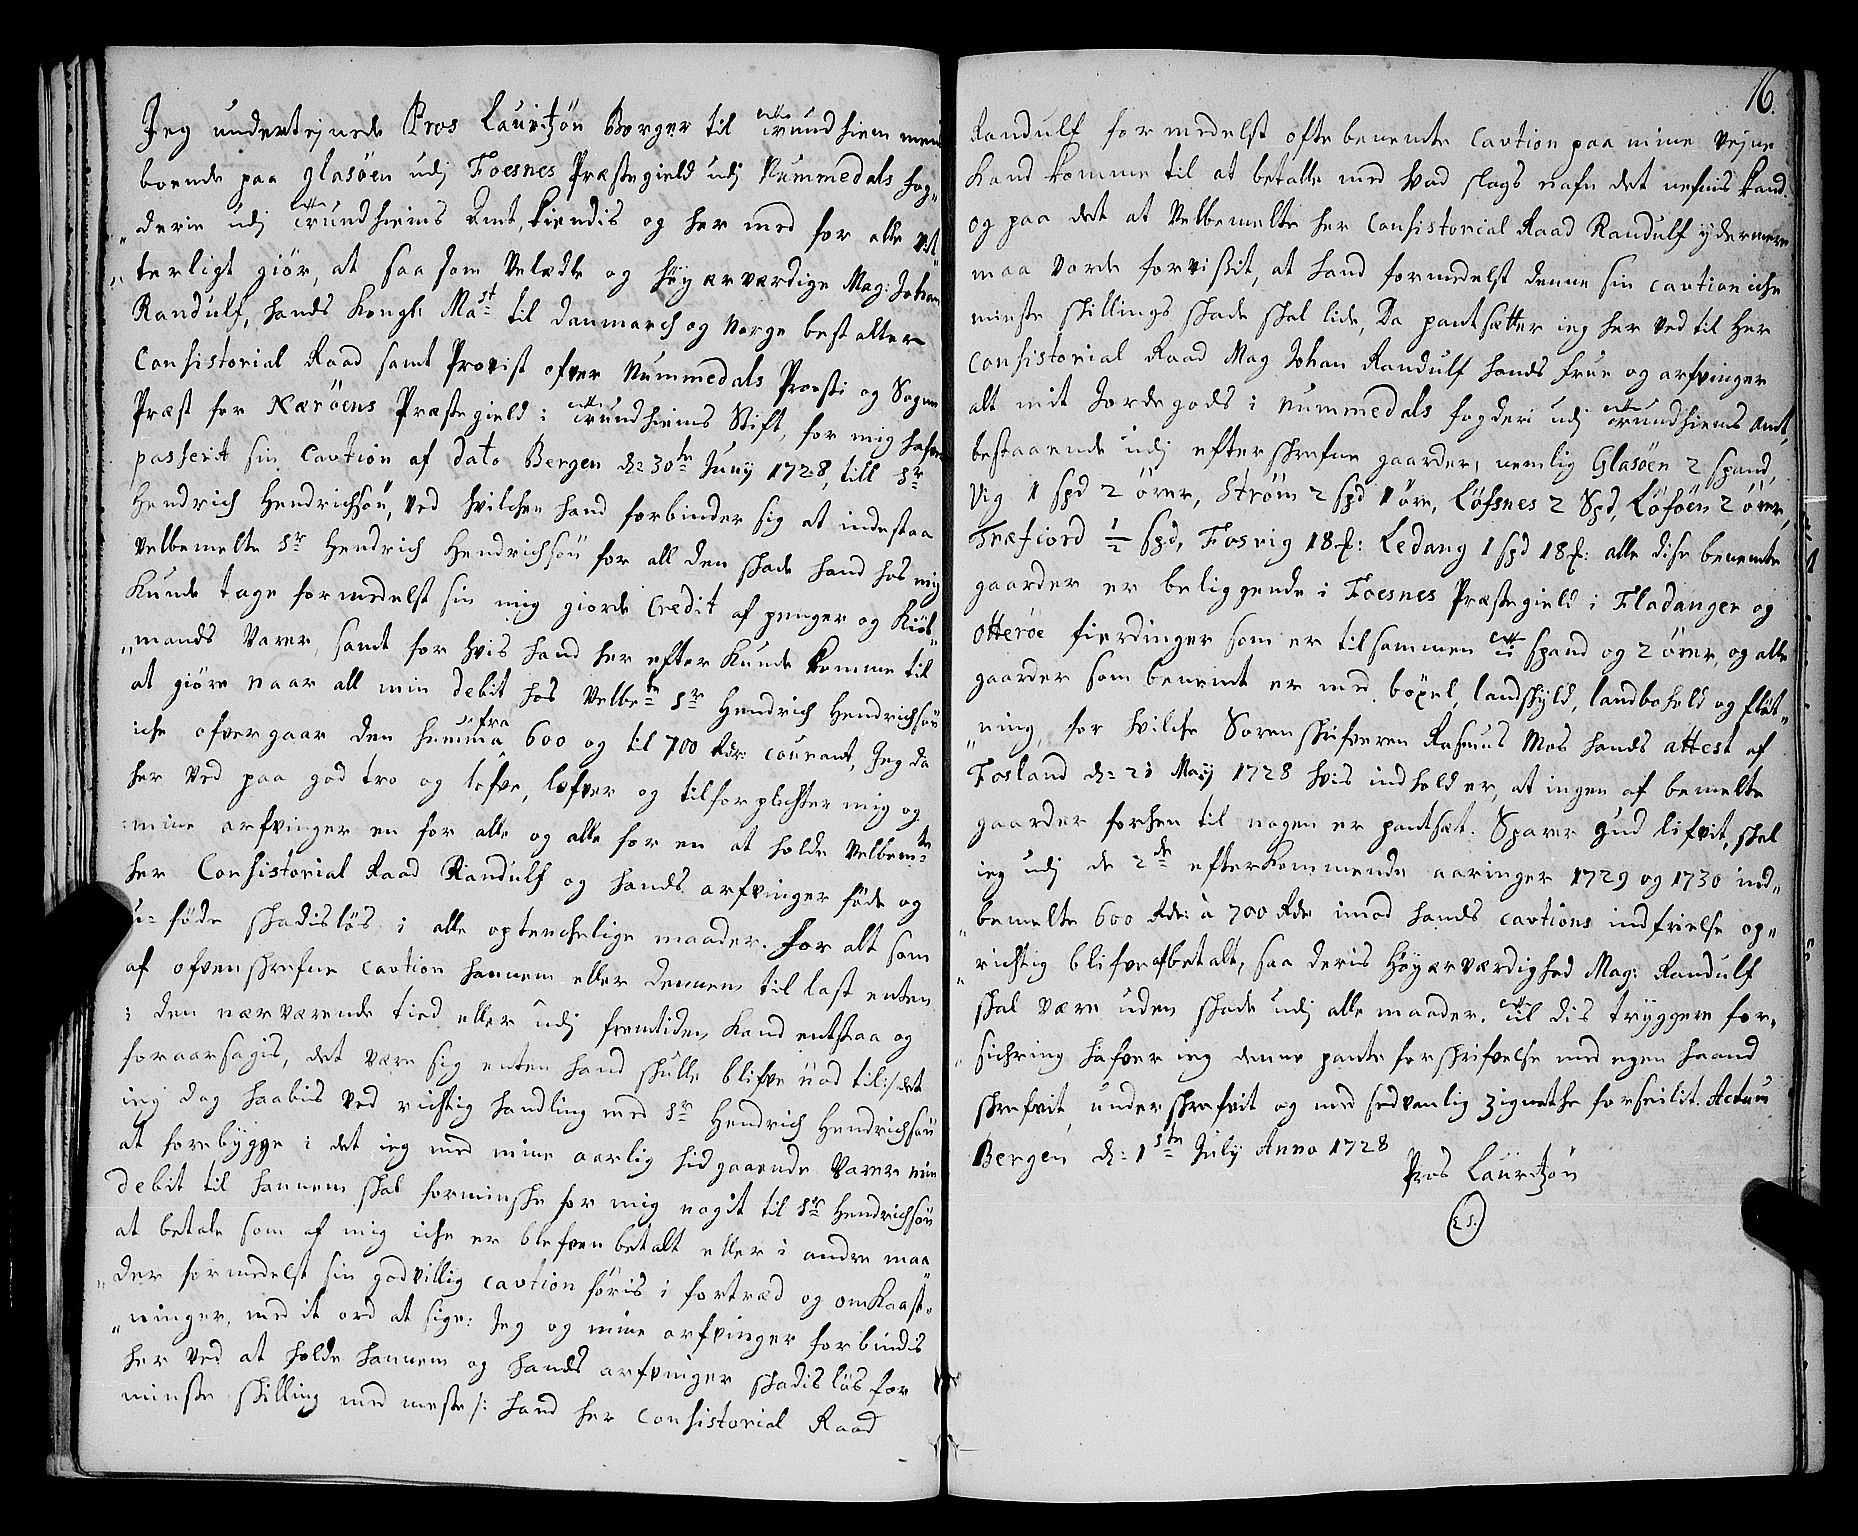 Jeg undertejnede Pros Lauritzøn Borger til Trundhiem men
boende paa Glasöen udj Foesnes Præstegield udj Nummedals fog„
„derie udj Trundhiems Amt, kiendis og her med for alle vit„
„terligt giör, at saa som Velædle og Höyærværdige Mag: Johan
Randulf, hands Kongl: Mast til Danmarch og Norge bestalter
Consistorial Raad samt Provist ofver Nummedals Provsti og Sogne
Præst for Nærøens Præstegield i Trundhiems Stift, for mig hafver
passerit sin Cavtion af dato Bergen d: 30te Junij 1728, till Sr
Hendrich Hendrichsøn, ved hvilchen hand forbinder sig at indestaa
velbemelte Sr Hendrich Hendrichsøn for all den skade hand hos mig
kunde tage formedelst sin mig giorde Credit af penger og Kiöb„
„mands Varer, samt for hvis hand her efter kunde komme til
at giöre naar all min debit hos Velbete Sr Hendrich Hendrichsøn
iche ofvergaar den summa fra 600 og til 700 Rdr: courant, Jeg da
her ved paa god tro og lofve, lofver og tilforplichter mig og
mine arfvinger en for alle og alle for en at holde Velbemte
her Consistorial Raad Randulf og hands arfvinger föde og
u=föde skadislös i alle optenchelige maader. For alt som
af ofvenskrefne cavtion hannem eller dennem til last enten
i den nærværende tied eller udj fremtiden kand entstaa og
foraarsagis, det være sig enten hand skulle blifve nöd til:/ det
ieg dog haabis ved richtig handling med Sr Hendrich Hendrichsøn
at forebygge i det ieg med mine aarlig hidgaaende Varer min
debit til hannem skal forminske for mig nogit til Sr Hendrichsøn
at betale som af mig iche er blefven betalt eller i andre maa„
„der formedelst sin godvillig cavtion föris i fortræd og omkaast„
„ninger, med it ord at sige: Jeg og mine arfvinger forbindis
her ved at holde hannem og hands arfvinger skadislös for
minste skilling med meste /: hand her Consistorial Raad
16.
Randulf formedelst ofte benemte Cavtion paa mine vejne
kand komme til at betalle med hvad slags nafn det nefnis kand.
og paa det at Velbemelte her Consistorial Raad Randulf ydermere
maa vorde forvissit, at hand formedelst denne sin cavtion iche
minste skillings skade skal lide, Da pantsætter ieg her ved til Her
Consistorial Raad Mag Johan Randulf hands frue og arfvinger
alt mit Jordegods i Nummedals fogderi udj Trundhiems Amt,
bestaaende udj efterskrefne gaarder, nemlig Glasöen 2 spand,
Vig 1 spd 2 örer, Ström 2 spd 1 öre, Löfsnes 2 Spd, Löföen 2 örer,
Træfiord ½ spd, Fosvig 18 £: Ledang 1 spd 18 £: alle disse benemte
gaarder er beliggende i Foesnes Præstegield i Fladanger og
Otteröe fierdinger som er tilsammen spand og 2 örer, og alle
gaarder som benemt er med böxel, landskyld, landbohold og flöt„
„ning, for hvilche Sorenskrifveren Rasmus Moe hands attest af
Fosland d: 21 Maij 1728 hvis indhold er, at ingen af bemelte
gaarder forhen til nogen er pantsat. Sparer Gud lifvit, skal
ieg udj de 2de efterkommende aaringer 1729 og 1730 ind„
„bemelte 600 Rdr: à 700 Rdr imod hands cavtions indfrielse op„
„richtig blifve afbetalt, saa deris Höyærværdighed Mag: Randulf
skal være uden skade udj alle maader. Til dis tryggere for„
„sichring hafver ieg denne pante forskrifvelse med egen haand
skrefvit, underskrefvit og med sedvanlig Zignethe forseilit. Actum
Bergen d: 1ste July Anno 1728
Pros Lauritzøn
LS.